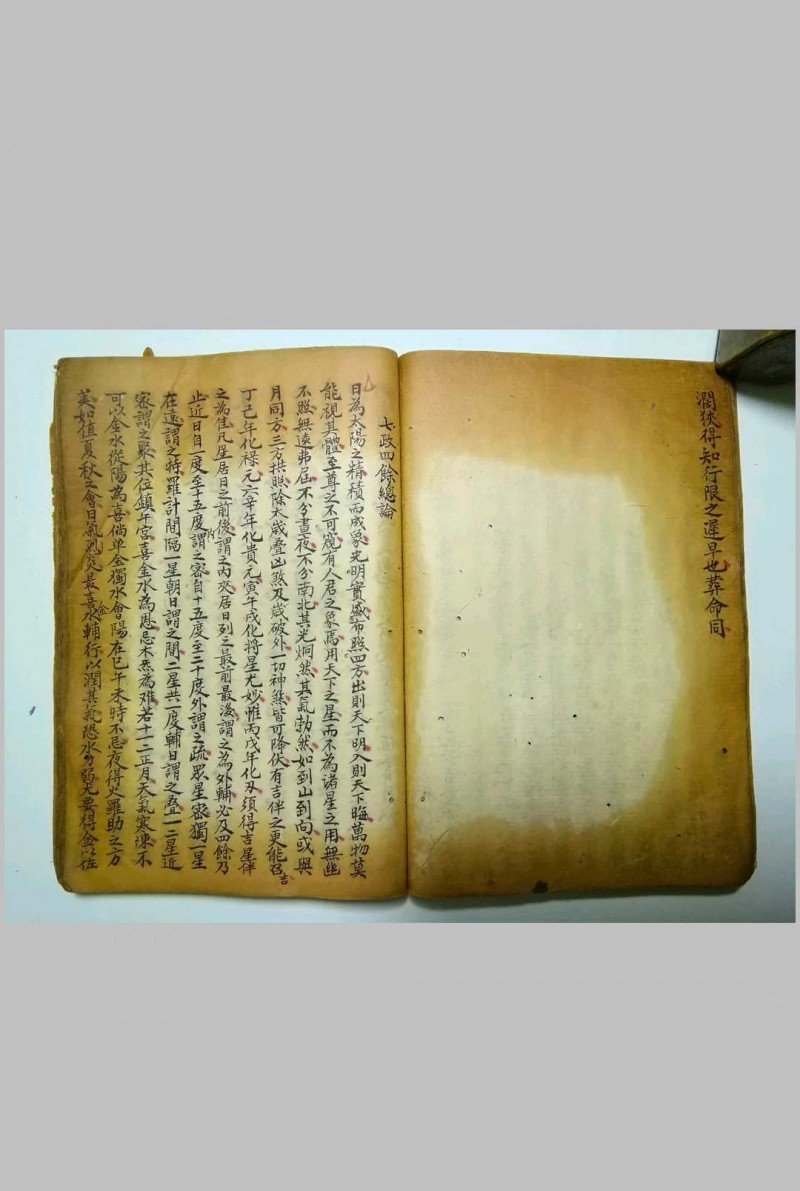 濶狹得知行限之遲早也葬命同
七政四餘總論
日為太陽之精積而成象光明實盛布照四方出則天下明入則天下晦萬物莫
能視其體至尊之不可窺有人君之象焉用天下之星而不為諸星之用無幽
不照無遠弗屆不分晝夜不分南北其光炯然其氣勃然如到山到向或與
月同方三方拱照除太歲叠凶煞及歲破外一切神煞皆可降伏有吉伴之更能召吉
丁己年化祿元六辛年化貴元寅午戌化將星尤妙惟丙戊年化刃須得吉星伴
之為佳凡星居日之前後謂之內夾居日列之最前最後謂之為外輔必及四餘乃
止近日自一度至十五度謂之密自十五度至二十度外謂之疏眾星密獨一星
在遠謂之特羅計間隔一星朝日謂之間二星共一度輔日謂之叠一二星近
密謂之聚其位鎮午宮喜金水為恩忌木炁為难若十一二正月天氣寒凍不
可以金水從陽為喜倘单金獨水會陽在巳午未時不忌夜得火羅助之方
美如值夏秋之會日氣烈炎最喜金水輔行以潤其氣恐水力弱尤要得金以佐